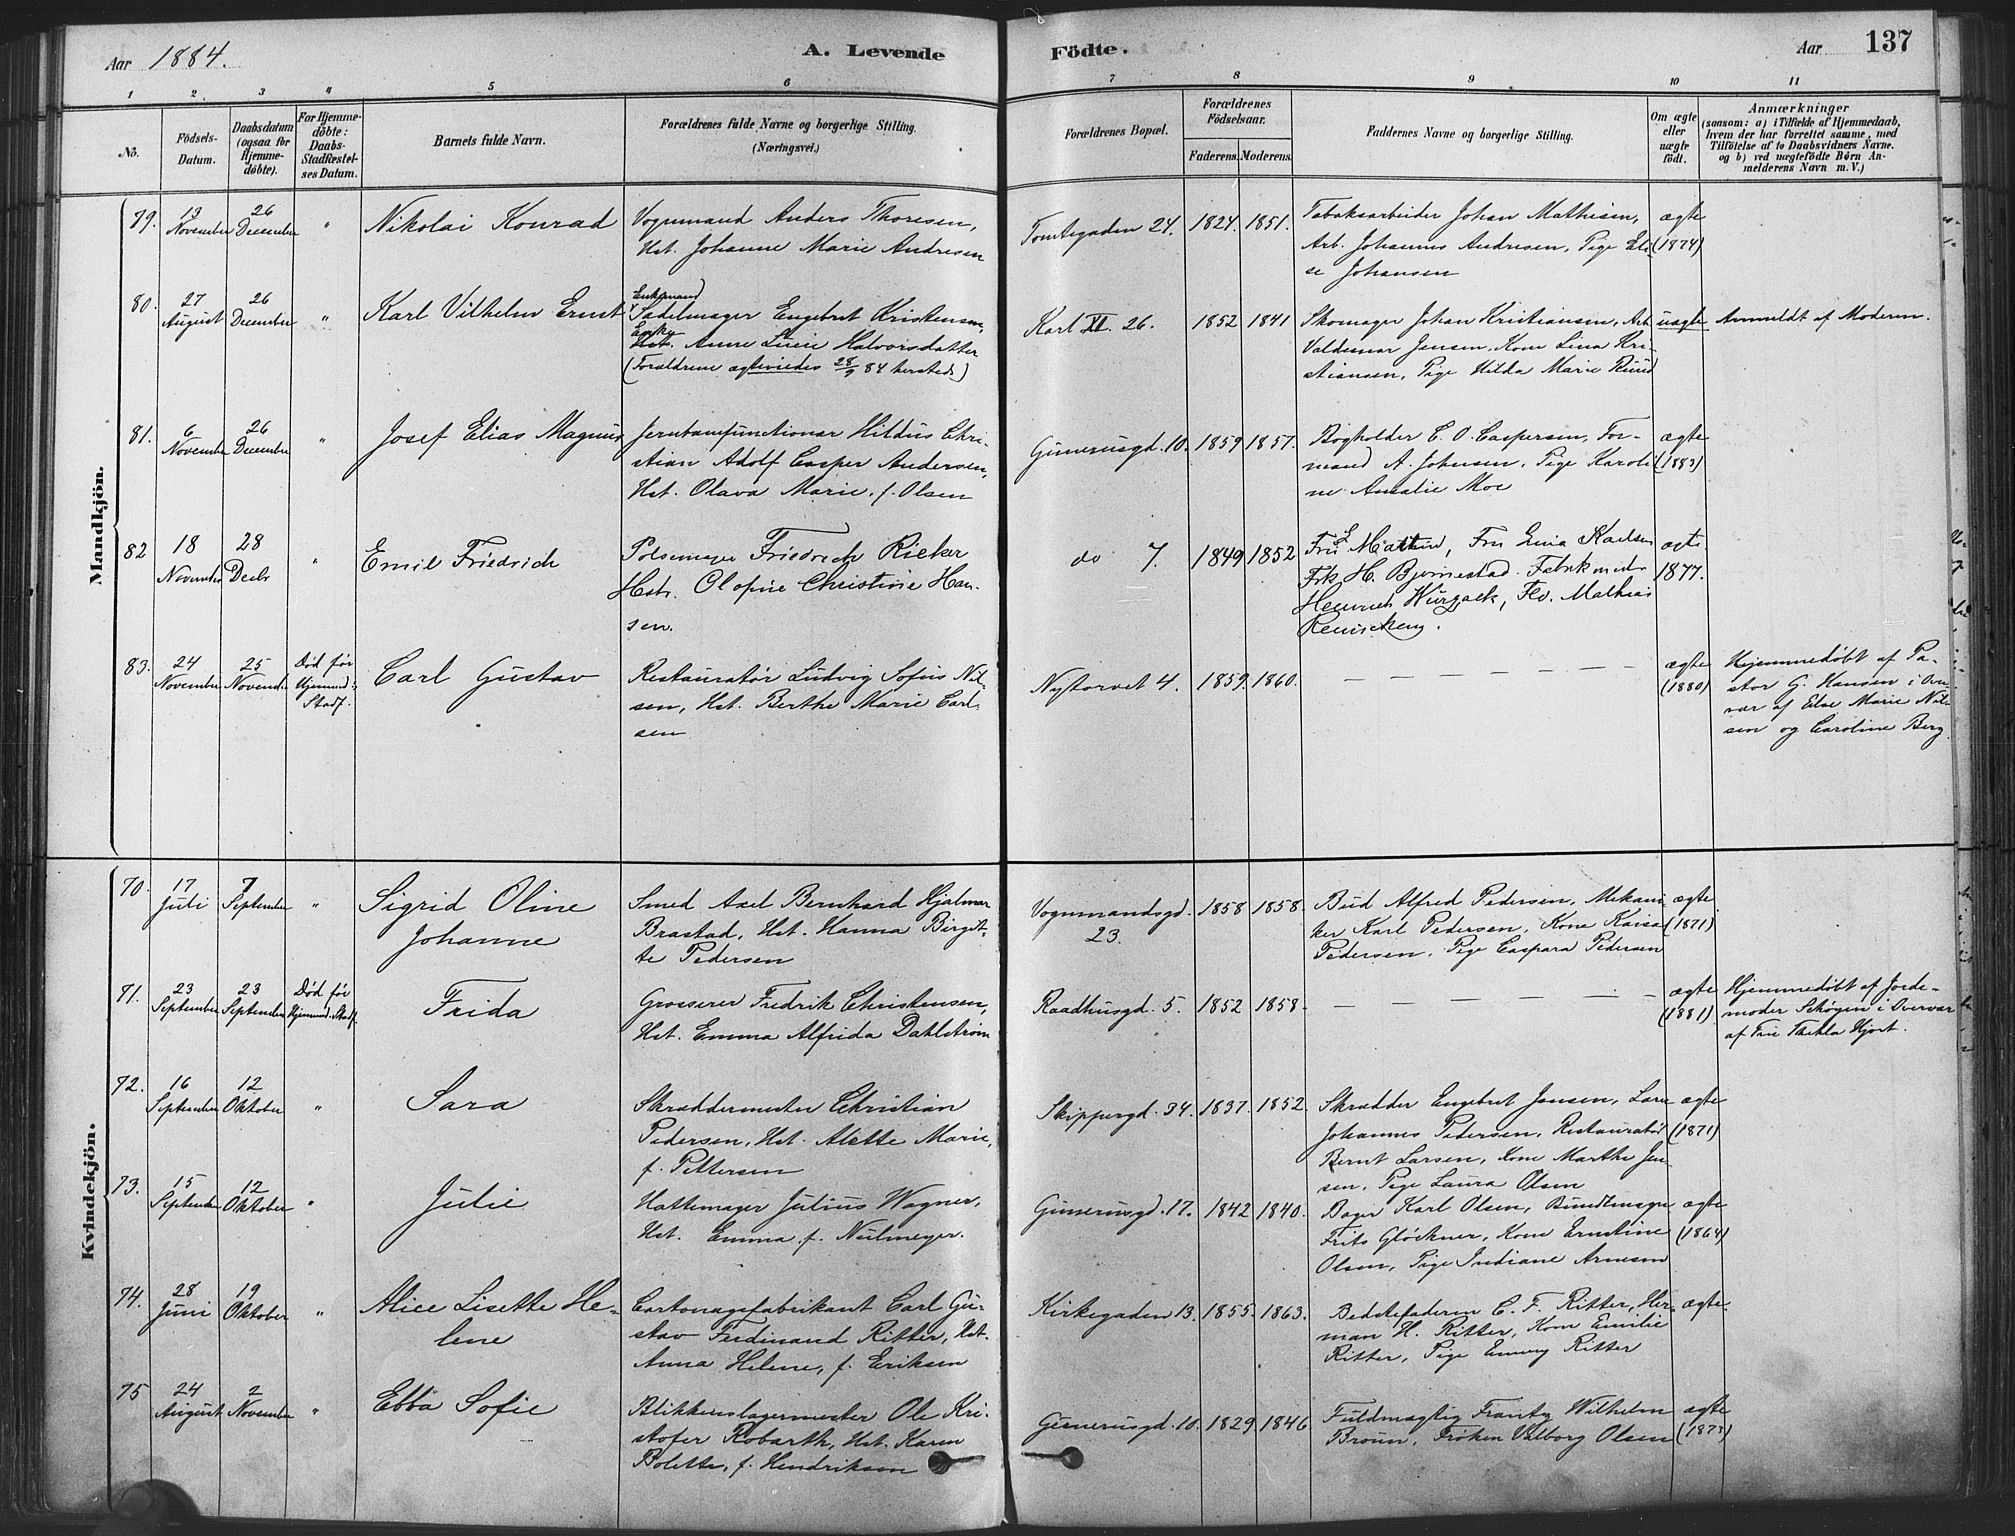 Aar 1884.
A. Levende
Födte.
Aar
137
1 2 3 4 5 6 7 8 9 10 11
No.
Födsels-
Datum.
Daabsdatum
(ogsaa for
Hjemme-
döbte).
For Hjemme-
döbte:
Daabs-
Stadfæstel-
ses Datum.
Barnets fulde Navn.
Forældrenes fulde Navne og borgerlige Stilling.
(Næringsvei.)
Forældrenes Bopæl.
Forældrenes
Födselsaar.
Faderens. Moderens.
Faddernes Navne og borgerlige Stilling.
Om ægte
eller
uægte
födt.
Anmærkninger
(saasom: a) i Tilfælde af Hjemmedaab,
hvem der har forrettet samme, med
Tilföielse af to Daabsvidners Navne.
og b) ved uægtefödte Börn An-
melderens Navn m.V.)
Mandkjön.
79.
13
November
26
December
"
Nikolai Konrad
Vognmand Anders Thoresen,
Hst. Johanne Marie Andresen
Tomtegaden 24.
1824.
1851.
Tobaksarbeider Johan Mathisen,
Arb. Johannes Andresen, Pige Eli-
se Johansen
ægte
(1874)
80.
27
August
26
December
"
Karl Vilhelm Ernst
Enkemand
Sadelmager Engebret Kristensen,
Enke
Hst. Anne Lucie Halvorsdatter
(Forældrene ægteviedes 28/9 84 hersteds)
Karl XII. 26.
1852
1841
Skomager Johan Kristiansen, Arb
Valdemar Jensen, Kone Lina Kri-
stiansen, Pige Hilda Marie Ruud
uægte
Anmeldt af Moderen.
81.
6
November
26
December
"
Josef Elias Magnus
Jernbanefunctionær Hildus Chri-
stian Adolf Casper Andersen,
Hst. Olava Marie, f. Olsen
Gunerusgd. 10.
1859
1857.
Bogholder C. O. Caspersen, For-
mand A. Johnsen, Pige Karoli
ne Amalie Moe
ægte
(1883)
82
18
November
28
Decbr
"
Emil Friedrich
Pølsemager Friedrich Rieker
Hstr. Olofine Christine Han-
sen.
do 7.
1849
1852
Fru Karlsen
Frk H. Bjørnestad.
Heinrich Mathias
ægte
1877.
83.
24
November
25
Novembr
Død før
Hjemmed:
Stadf.
Carl Gustav
Restauratør Ludvig Sofus Nil-
sen, Hst. Berthe Marie Carl-
sen
Nytorvet 4.
1859.
1860.
— — — — — —
ægte
(1880)
Hjemmedøbt af Pa-
stor G. Hansen i Over
vær af Else Marie Nil-
sen og Caroline Berg.
Kvindekjön.
70.
17
Juli
7
September
"
Sigrid Oline
Johanne
Smed Axel Bernhard Hjalmar
Brastad, Hst. Hanna Birgit-
te Pedersen
Vognmandsgd.
23.
1858
1858.
Bud Alfred Pedersen, Mekani-
ker Karl Pedersen, Kone Kaisa
Pedersen, Pige Caspara Pedersen
ægte
(1871)
71.
23
September
23
September
Død før
Hjemmed. Stadf.
Frida
Grosserer Fredrik Christensen,
Hst. Emma Alfrida Dahlstrøm
Raadhusgd. 5.
1852
1858.
— — — — — —
ægte
(1881)
Hjemmedøbt af Jorde-
moder Schøyen i Overvær
af Fru Thekla Hjort.
72.
16
September
12
Oktober
"
Sara
Skræddermester Christian
Pedersen, Hst. Alette Marie,
f. Pettersen
Skippergd. 34.
1837.
1852.
Skrædder Engebret Jensen,
Johannes Pedersen, Restauratør
Bernt Larsen, Kone Marthe Jen-
sen, Pige Laura Olsen
ægte
(1871)
73.
15
September
12
Oktober
"
Julie
Hattemager Julius Wagner,
Hst. Emma f. Neilmeyer.
Gunerusgd. 17.
1842
1840.
Bager Karl Olsen, Bundtmager
Frits Gløckner, Kone Ernstine
Olsen, Pige Indiane Arnesen
ægte
(1864)
74.
28
Juni
19
Oktober
"
Alice Lisette He-
lene
Cartonagefabrikant Carl Gu-
stav Ferdinand Ritter, Hst.
Anna Helene, f. Eriksen
Kirkegaden 13.
1855.
1863.
Bedstefaderen C. F. Ritter, Her-
man H. Ritter, Kone Emilie
Ritter, Pige Emmy Ritter
ægte.
75
24
August
2
November
"
Ebba Sofie
Blikkenslagermester Ole Kri-
stofer Robarth, Hst. Karen
Bolette, f. Hendriksen
Gunerusgd. 10.
1829
1846
Fuldmægtig Frantz Wilhelm
Broun, Frøken Valborg Olsen
ægte